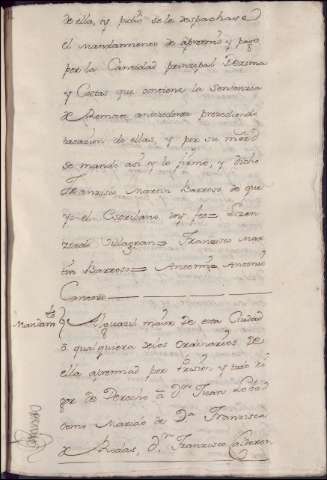 de ella, y pidio se le despachase
el mandamiento de apremio y pago
por la Cantidad principal Dezima
y Costas que contiene la Sentencia
de Remate antecedente precediendo
tasacion de ellas, y por su mrd
se mando asi y lo firmo, y dicho
Francisco Martin Barroso de que
yo el Escribano doy fee= Lizen
ziado Villagran= Francisco Mar
tin Barroso= Antemi= Antonio
Canseco
Mandamto
Alguacil maior de esta Ciudad
o qualquiera de los ordinarios de
ella apremiad por prision y todo ri
gor de Derecho a Dn Juan
como Marido de Da Francisca
de Ruedas, Dn Francisco Calderon